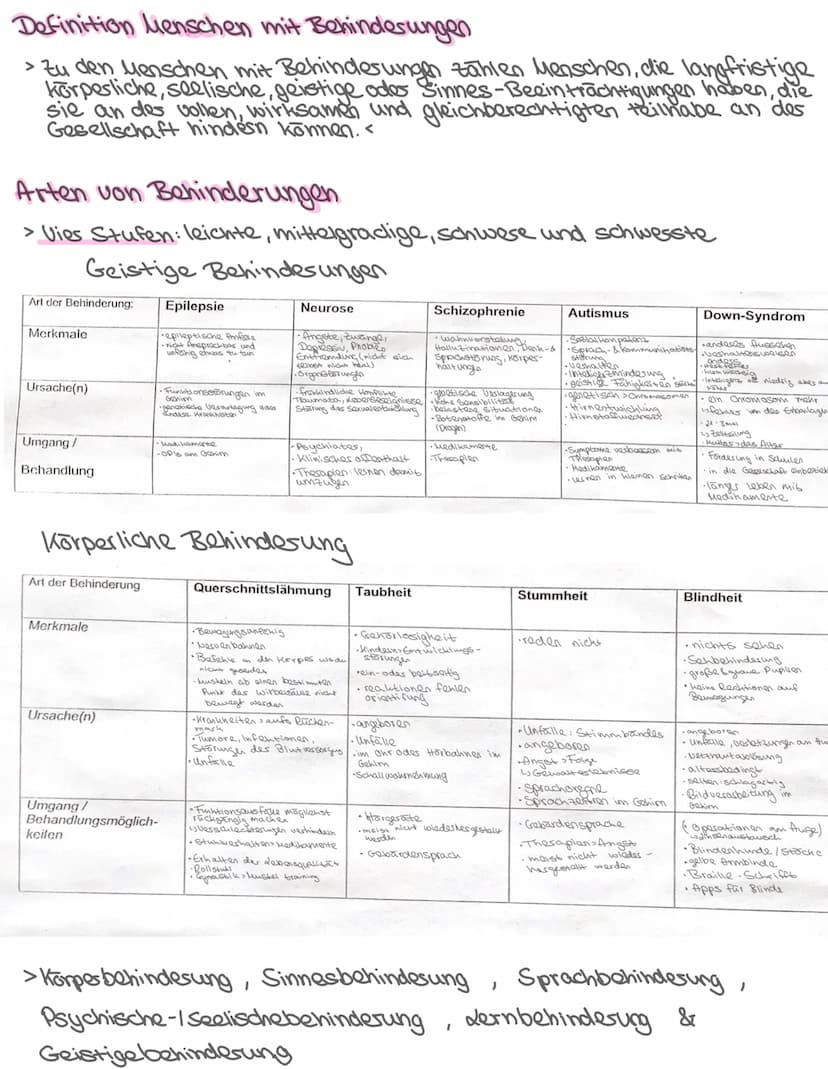 Definition Menschen mit Behinderungen
> Zu den Menschen mit Behinderungen zählen Menschen, die langfristige
körperliche, seelische, geistige oder Sinnes-Beeinträchtigungen haben, die
sie an der vollen, wirksamen und gleichberechtigten Teilhabe an der
Gesellschaft hindern können. <
Arten von Behinderungen
> Vier Stufen: leichte, mittelgradige, schwere und schwerste
Geistige Behinderungen
Art der Behinderung: Epilepsie Neurose Schizophrenie Autismus Down-Syndrom
Merkmale
· epileptische Anfälle
· nicht ansprechbar und
unfähig etwas zu tun
· Ängste, Zwänge,
Depressiv, Phobie,
Entfremdung (nicht sich
selbst nicht real)
· Wahnvorstellung,
Halluzinationen, Denk- &
Sprachstörung, Körper-
haltung
· Sozialkompetenz
· Sprach- & Kommunikations-
störung
· Verhalten
· anderes Aussehen
Ursache(n)
· Funktionsstörungen im
Gehirn
· genetische Veranlagung oder
andere Krankheiten
· frühkindliche Konflikte
· genetische Veranlagung
· hohe Sensibilität
· belastende Situationen
· Botenstoffe im Gehirn
(Drogen)
· genetisch > Chromosomen
· Hirnentwicklung
· Hirnstoffwechsel
· ein Chromosom mehr
Umgang /
Behandlung
· Medikamente
· OP's am Gehirn
· Psychiater,
· Klinischer Aufenthalt
· Therapien: lernen damit
umzugehen
· Medikamente
· Therapien
· Symptome verbessern mit
Therapien
· Medikamente
· lernen in kleinen Schritten
· Förderung in Schulen
· in die Gesellschaft
· länger leben mit
Medikamente
Körperliche Behinderung
Art der Behinderung Querschnittslähmung Taubheit Stummheit Blindheit
Merkmale
· Bewegungsunfähig
· Nervenbahnen
· Befehle an den Körper
nicht
· Muskeln ab einen bestimmten
Punkt der Wirbelsäule nicht
bewegt werden
· Gehörlosigheit
· Kindern > Entwicklungs-
störungen
· ein- oder beidseitig
· reaktionen fehlen
· reden nicht
· nichts sehen
· Sehbehinderung
· große & graue Pupillen
· keine Reaktionen auf
Bewegungen
Ursache(n)
· Krankheiten > aufs Rücken-
mark
· Tumore, Infektionen,
Störungen der Blutversorgung
· Unfälle
· angeboren
· Unfälle
· im Ohr oder Hörbahnen im
Gehirn
· Schallwahrnehmung
· Unfälle: Stimmbänder
· angeboren
· Angst > Folge
↳ Gewalterlebnisse
· Sprachorgane
· Sprachzentren im Gehirn
· angeboren
· Unfälle, Verletzungen am
· Netzhautablösung
· altersbedingt
· selten: schlagartig
· Bildverarbeitung im
Gehirn
Umgang /
Behandlungsmöglich-
keiten
· Funktionsausfälle möglichst
rückgängig machen
↳ Verschlechterungen verhindern
· Erhalten der Lebensqualität
· Rollstuhl
· Gymnastik > Muskel training
· Hörgeräte
· meist nicht wiederhergestellt
werden
· Gebärdensprach
· Gebärdensprache
· Therapien > Angst
· meist nicht wieder-
hergestellt werden
(Operationen am Auge)
· Blindenhunde / Stöcke
· gelbe Armbinde
· Braille-Schrift
· Apps für Blinde
> Körperbehinderung, Sinnesbehinderung, Sprachbehinderung,
Psychische-/Seelischebehinderung, Lernbehinderung &
Geistigebehinderung